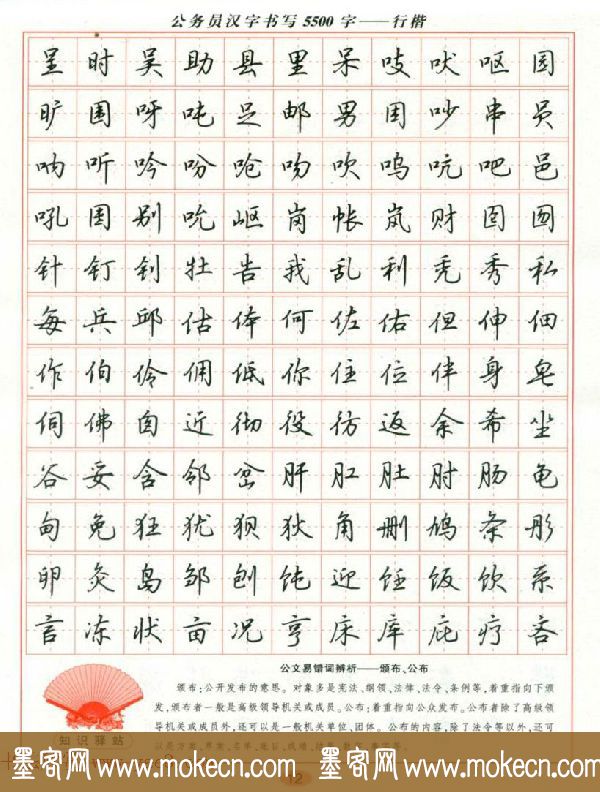 公务员汉字书写5500字——行楷
里 时 吴 助 县 里 呆 吱 吠 呕 园
旷 围 呀 吨 足 邮 男 困 吵 串 员
呐 听 吟 吩 呛 吻 吹 呜 吭 吧 邑
吼 囤 别 吮 岖 岗 帐 岚 财 囵 囫
针 钉 钊 牡 告 我 乱 利 秃 秀 私
每 兵 邱 估 体 何 佐 佑 但 伸 佃
作 伯 伶 佣 低 你 住 位 伴 身 皂
伺 佛 囱 近 彻 役 彷 返 余 希 坐
谷 妥 含 邻 岔 肝 肛 肚 肘 肠 龟
甸 免 狂 犹 狈 狄 角 删 鸠 条 彤
卵 灸 岛 邹 刨 饨 迎 饪 饭 饮 系
言 冻 状 亩 况 亨 床 库 庇 疗 吝
公文易错词辨析——颁布、公布
颁布:公开发布的意思。对象多是宪法、纲领、法律、法令、条例等,着重指向下颁
发,颁布者一般是高级领导机关或成员。公布:着重指向公众发布。公布者除了高级领
导机关或成员外,还可以是一般机关单位、团体。公布的内容,除了法令等以外,还可
知识驿站
墨客网 www.mokecn.com 墨客网 www.mokecn.com